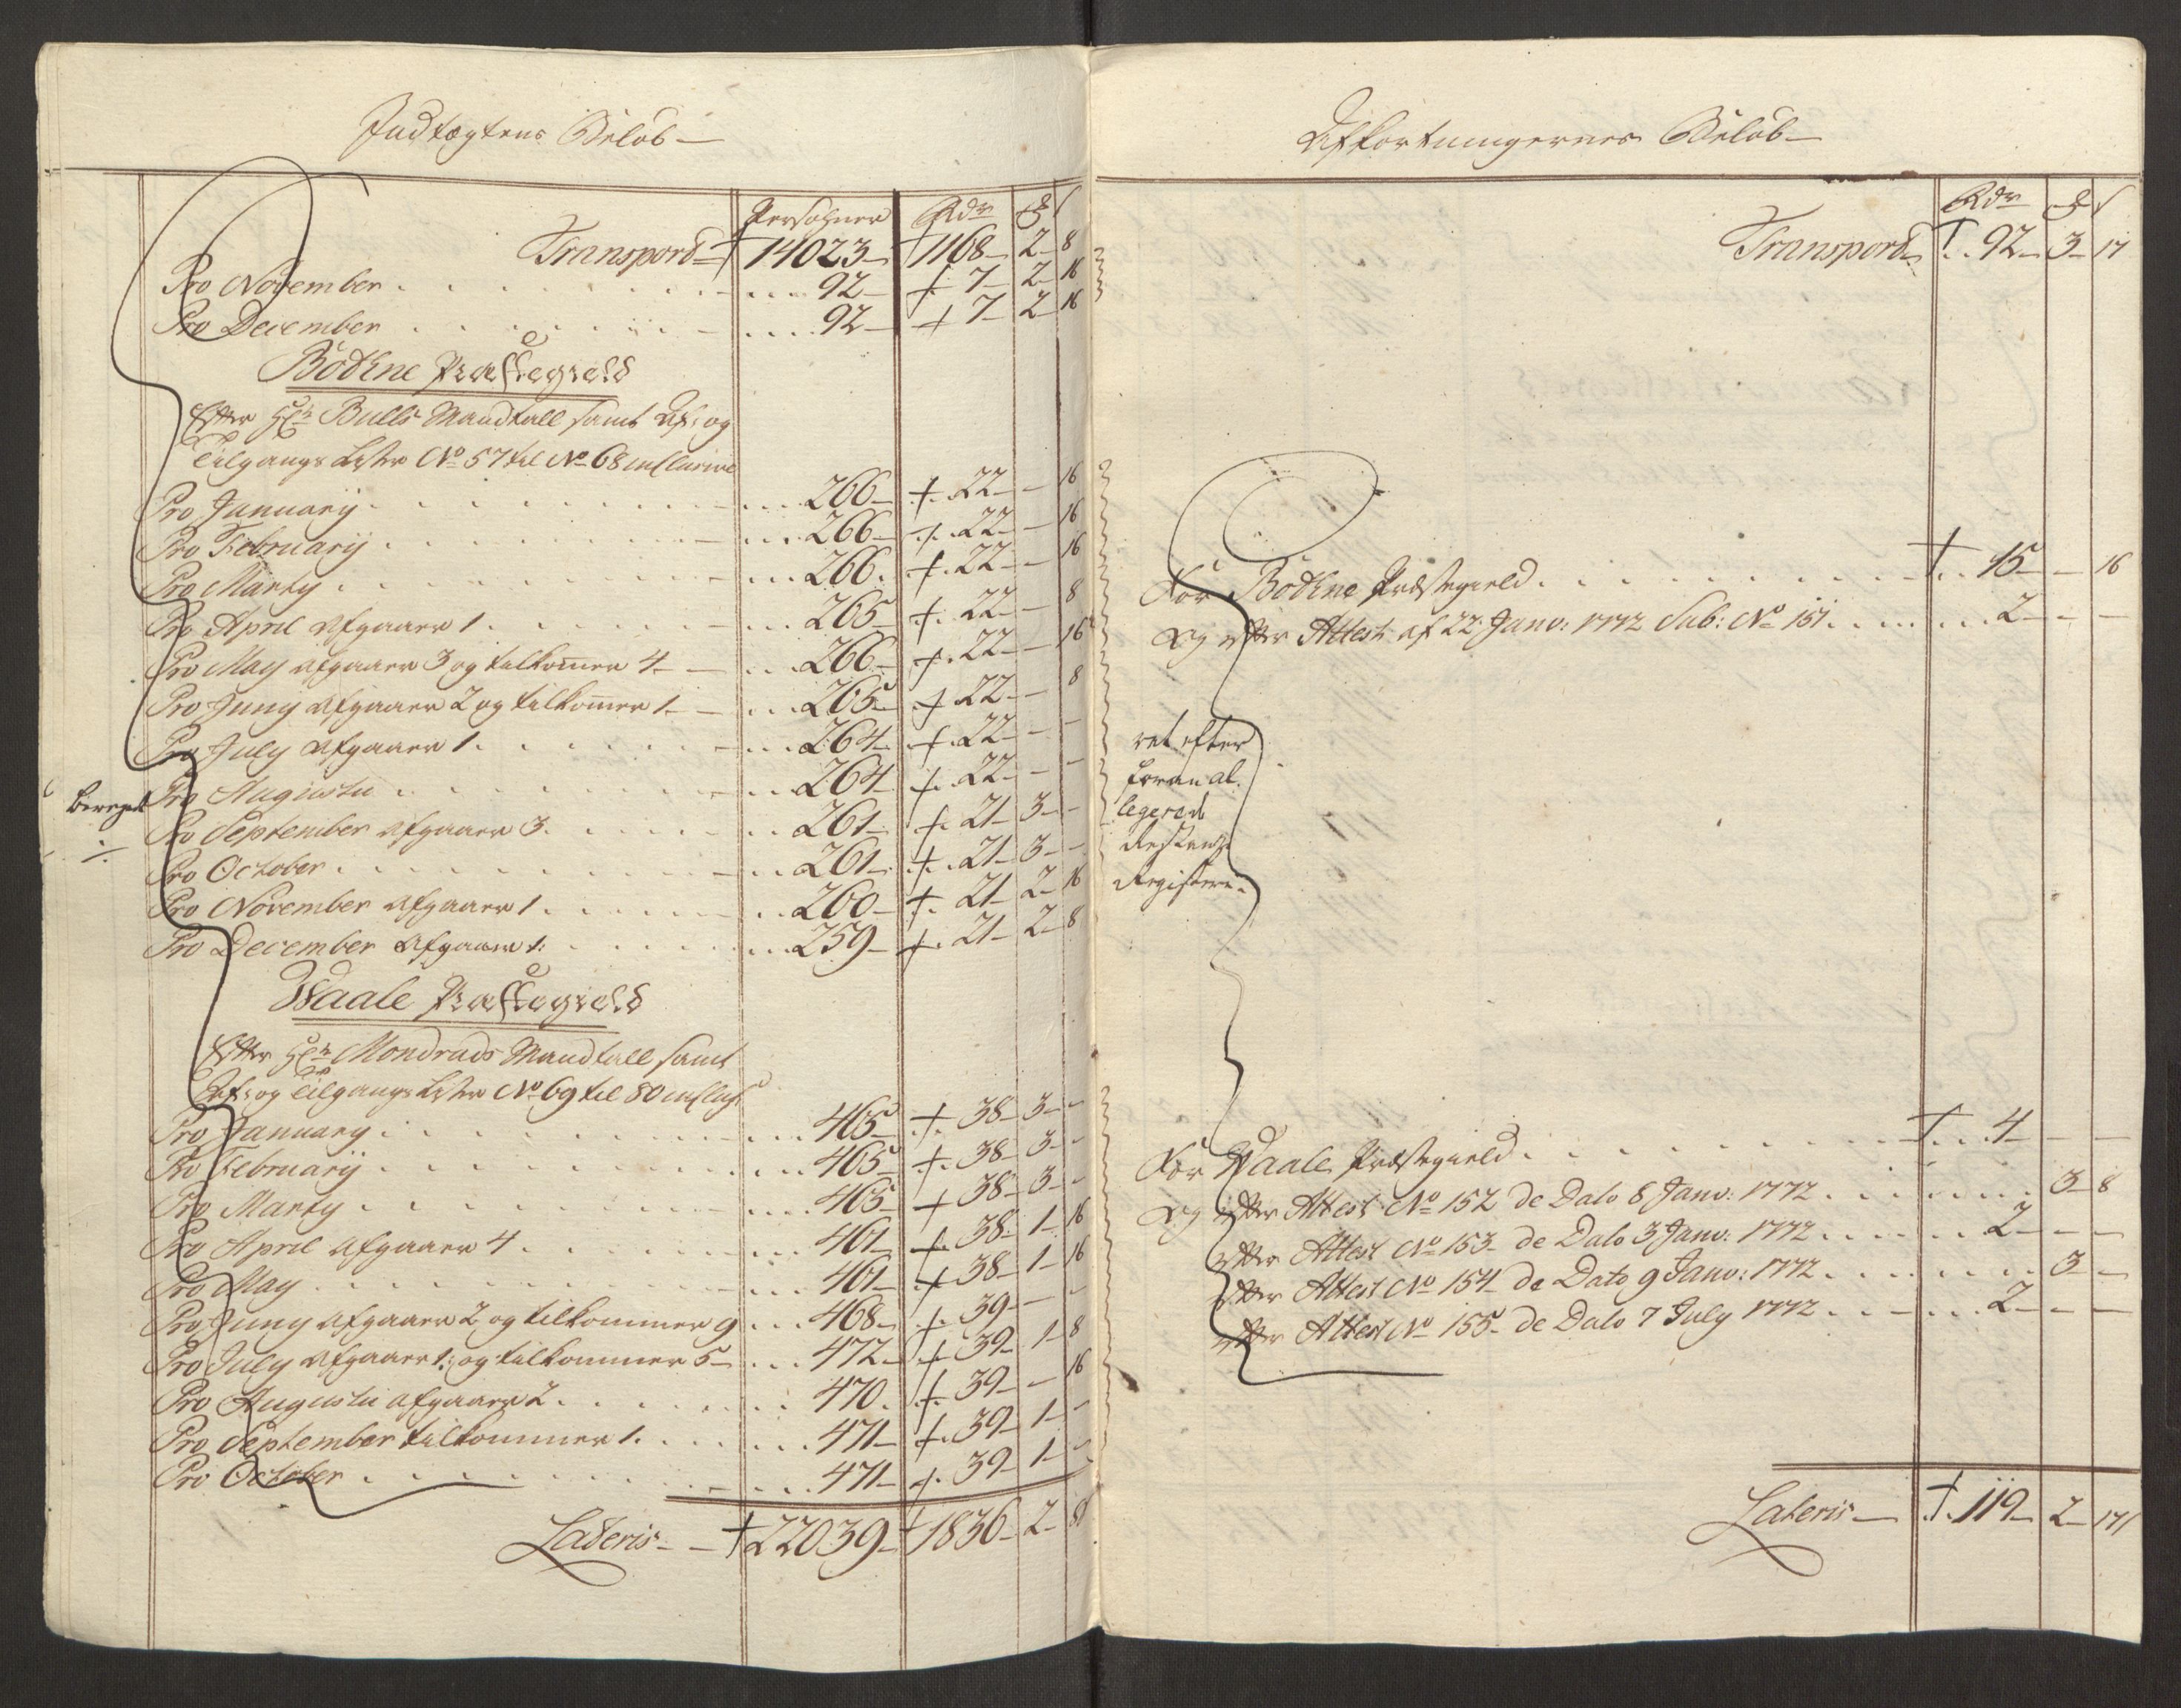 Indtægtens Beløb
Persohner Rdr ß
Transpord 14023 1168 2 8
Pro November 92 7 2 16
Pro December 92 7 2 16
Bothne Præstegield
Efter Hr Bulls Mandtall samt Af- og
Tilgangs Lister No 57 til No 68 inclusive
Pro January 266 22 - 16
Pro February 266 22 - 16
Pro Marty 266 22 - 16
Pro April afgaaer 1 265 22 - 8
Pro May afgaaer 3 og tilkommer 4 266 22 - 16
Pro Juny afgaaer 2 og tilkommer 1 265 22 - 8
Pro July afgaaer 1 264 22 - -
Pro Augustii 264 22 - -
Pro September afgaaer 3 261 21 3 -
Pro October 261 21 3 -
Pro November afgaaer 1 260 21 2 16
Pro December afgaaer 1 259 21 2 8
Beregnet
Waale Præstegield
Efter Hr Mondrads Mandtall samt
Af- og Tilgangs Lister No 69 til 80 inclus:
Pro January 465 38 3 -
Pro February 465 38 3 -
Pro Marty 465 38 3 -
Pro April afgaaer 4 461 38 1 16
Pro May 461 38 1 16
Pro Juny afgaaer 2 og tilkommer 9 468 39 - -
Pro July afgaaer 1: og tilkommer 5 472 39 1 8
Pro Augustii afgaaer 2 470 39 - 16
Pro September tilkommer 1 471 39 1 -
Pro October 471 39 1 -
Lateris 22039 1836 2 8
Afkortningernes Beløb
Rdr ß
Transpord 92 3 17
For Bothne Præstegield 15 - 16
Og efter Attest af 22 Janv: 1772 Sub: No 151 2 - -
ret efter
foranal-
legerede
Restance
Registere
For Waale Præstegield 4 - -
Og efter Attest No 152 de Dato 8 Janv: 1772 3 8
efter Attest No 153 de Dato 3 Janv: 1772 2 - -
efter Attest No 154 de Dato 9 Janv: 1772 3 -
efter Attest No 155 de Dato 7 July 1772 2 - -
Lateris 119 2 17